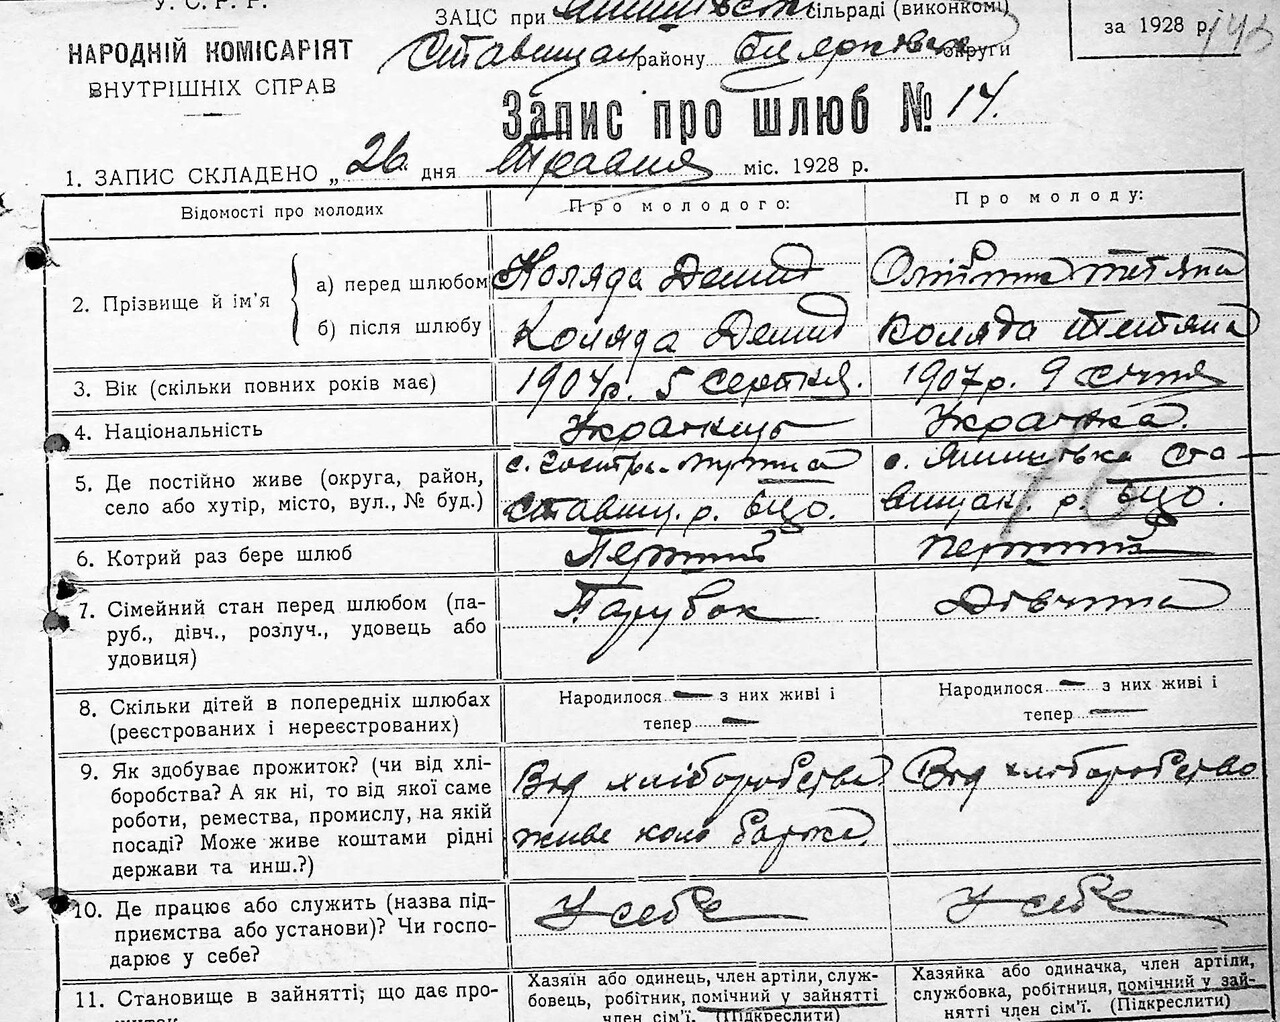 У. С. Р. Р.
НАРОДНІЙ КОМІСАРІЯТ
ВНУТРІШНІХ СПРАВ
ЗАЦС при сільраді (виконкомі)
Ставищан району округи
за 1928 р.
Запис про шлюб № 14.
1. ЗАПИС СКЛАДЕНО „ 26 дня Травня міс. 1928 р.
Відомості про молодих
Про молодого:
Про молоду:
2. Прізвище й ім'я
а) перед шлюбом
Коляда Демид
Тетяна
б) після шлюбу
Коляда Демид
Коляда Тетяна
3. Вік (скільки повних років має)
5 серпня.
1907 р. 9 січня
4. Національність
Українець
Українка.
5. Де постійно живе (округа, район,
село або хутір, місто, вул., № буд.)
с.
Ставищ. р. БЦО.
с. Янишівка Ста-
вищан. р. БЦО.
6. Котрий раз бере шлюб
Перший
Перший
7. Сімейний стан перед шлюбом (па-
руб., дівч., розлуч., удовець або
удовиця)
Парубок
Дівчина
8. Скільки дітей в попередніх шлюбах
(реєстрованих і нереєстрованих)
Народилося — з них живі і
тепер —
Народилося — з них живі і
тепер —
9. Як здобуває прожиток? (чи від хлі-
боробства? А як ні, то від якої саме
роботи, ремества, промислу, на якій
посаді? Може живе коштами рідні
держави та инш.?)
Від хліборобства
живе коло батька
Від хліборобства
10. Де працює або служить (назва під-
приємства або установи)? Чи госпо-
дарює у себе?
У себе
У себе
11. Становище в зайнятті; що дає про-
Хазяїн або одинець, член артіли, служ-
бовець, робітник, помічний у зайнятті
член сім'ї. (Підкреслити)
Хазяйка або одиначка, член артіли,
службовка, робітниця, помічний у зай-
нятті член сім'ї. (Підкреслити)